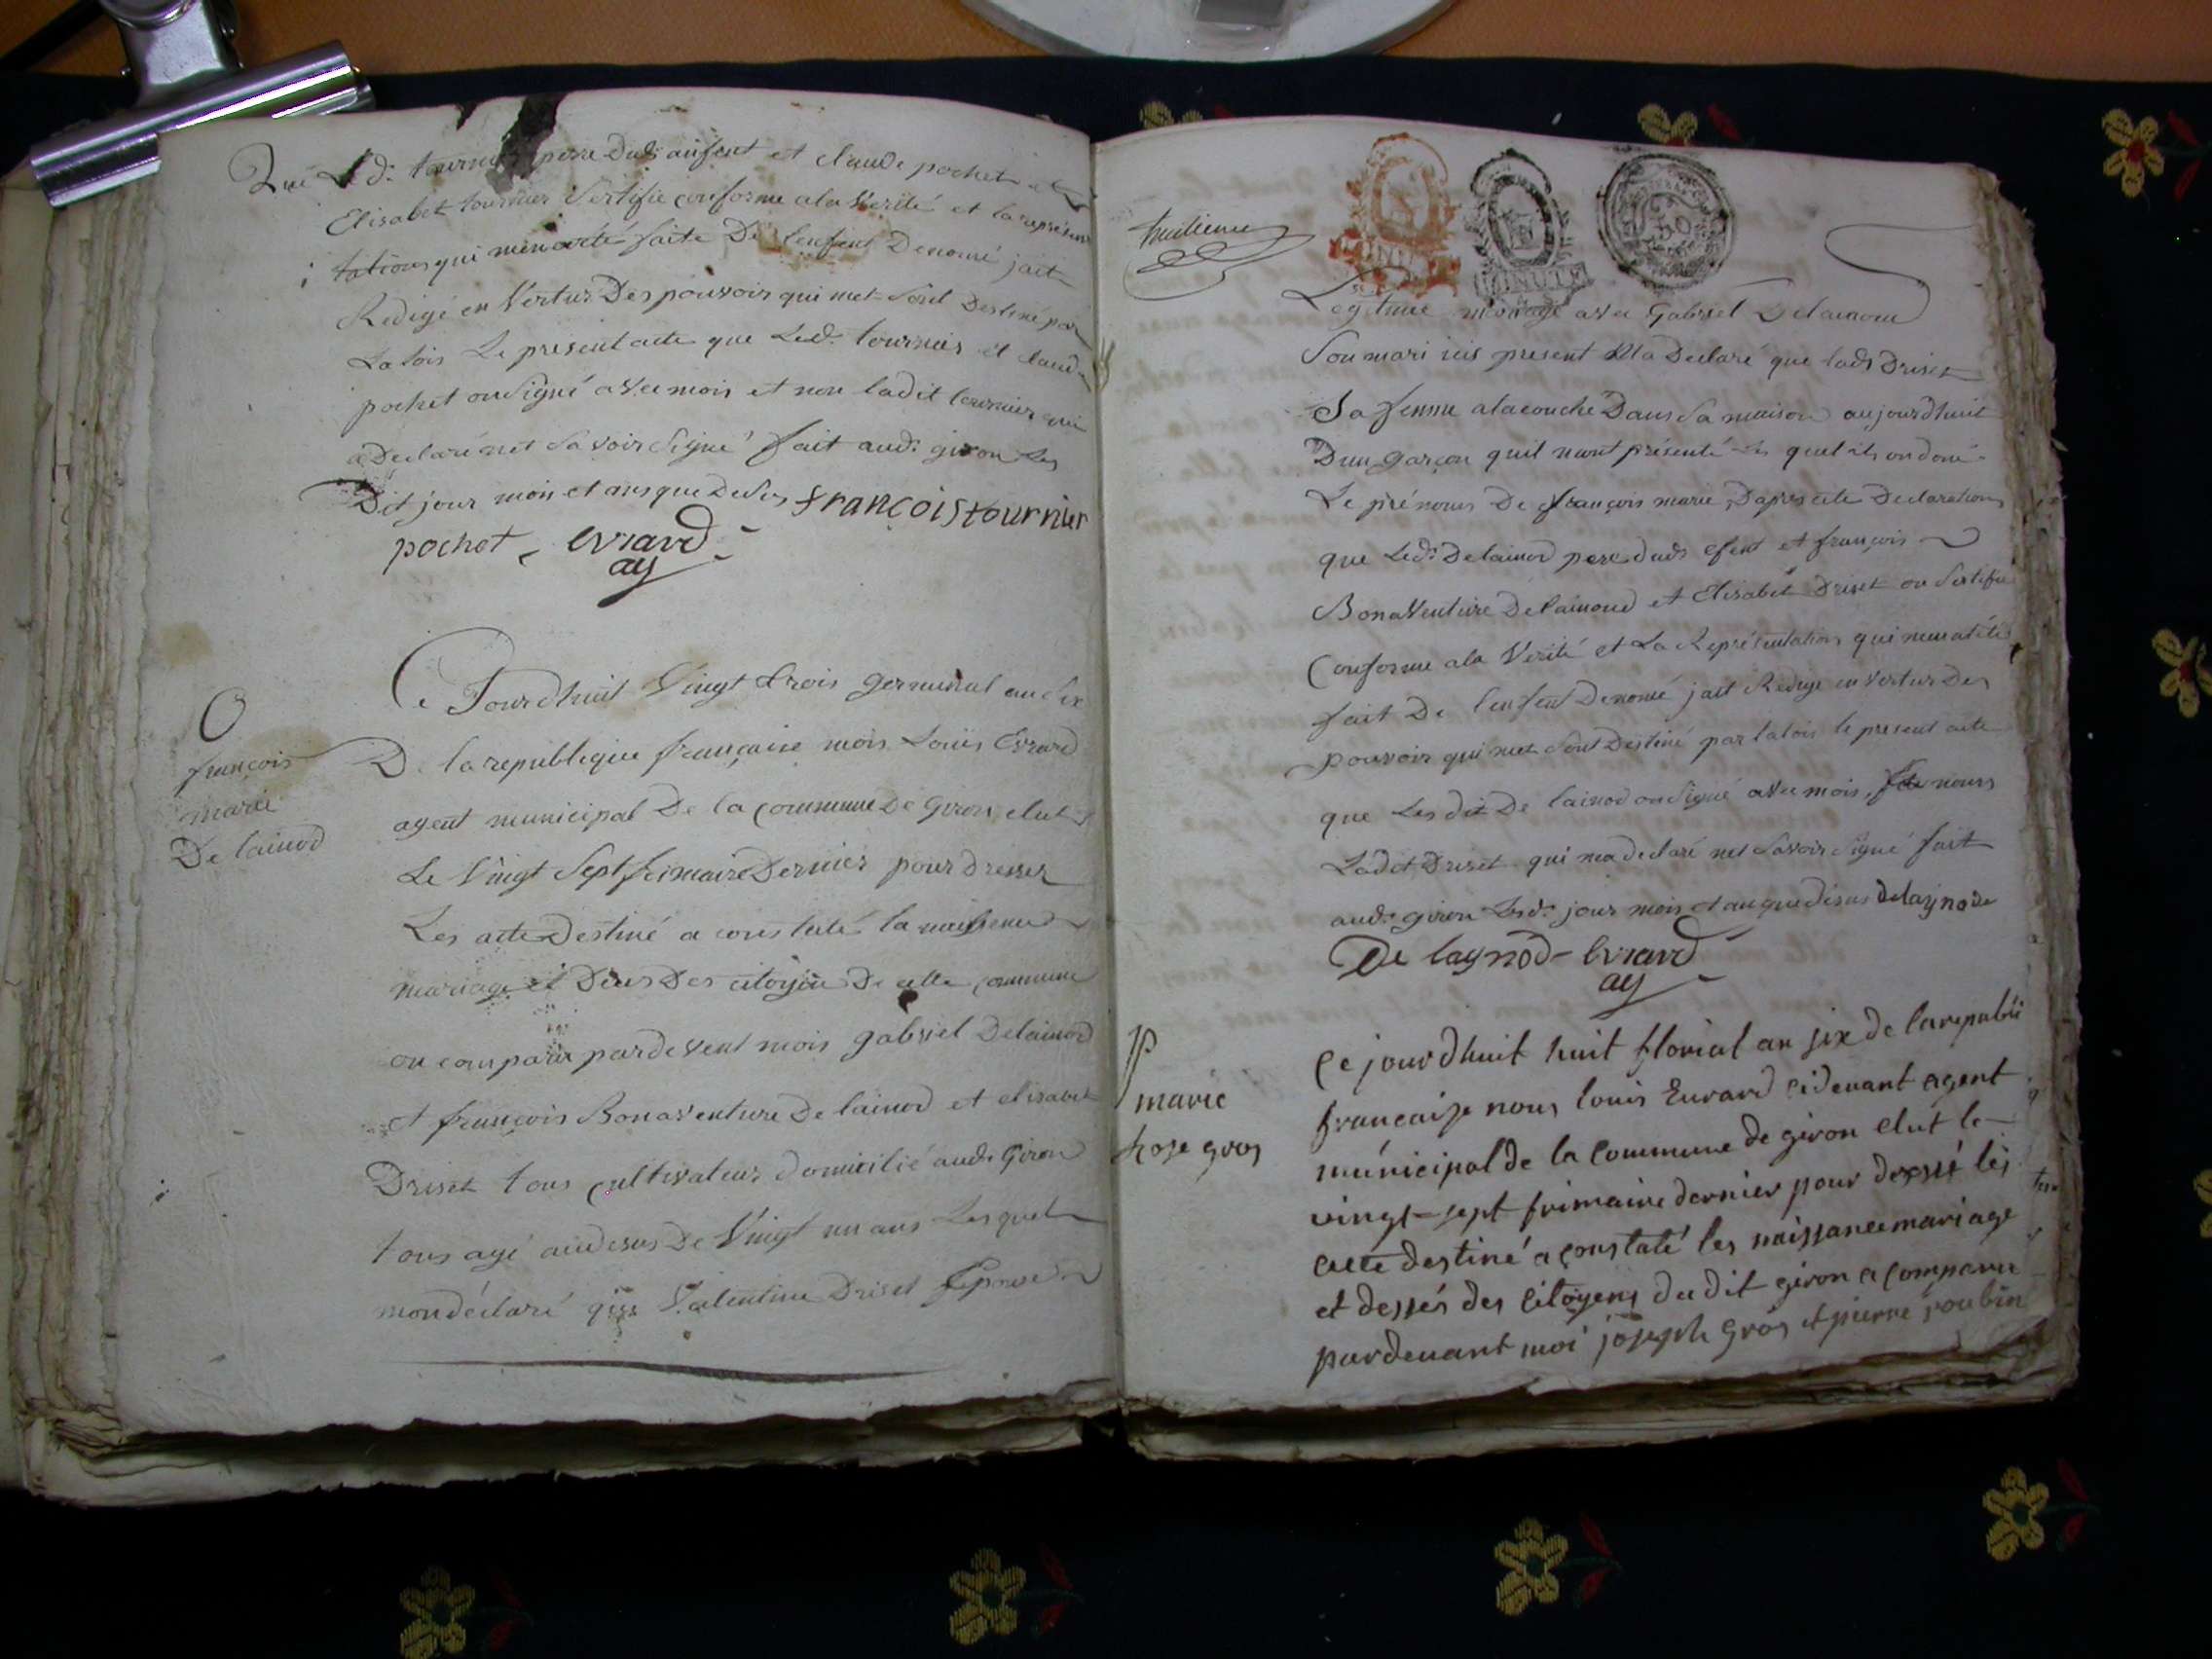 Que Led. tournier pere Dud. anfent et claude pochet et
Elisabet tournier Sertifie conforme ala Verité et la represen
tations qui men aeté faite De lenfent Denomé jait
Redigé en Vertus Des pouvoir qui met Sont Destiné par
La lois Le present acte que Led. tournier et claude
pochet on Signé avec mois et non ladit tournier qui
a Declaré net Savoir Signé fait aud. giron Les
Dit jour mois et ans que Desus françois tournier
pochet evrard
ag
Ce Jourdhuit Vingt trois germinal an six
De la republique française mois Louis Evrard
agent municipal De la Commune De Giron elut
Le Vingt Sept frimaire Dernier pour Dresser
Les acte Destiné a constaté la naissence
mariage et Deces Des citoyen De cette commune
on comparu pardevent mois gabriel Delainod
et françois Bonaventure De lainod et elisabet
Driset tous cultivateur domicilié aud. Giron
tous agé audesus De Vingt un ans Lesquel
mon déclaré que Valentine Driset Epouse
françois
marie
De lainod
huitieme
MINUTE
MINUTE
50
Legitime mariage avec Gabriel Delainod
Son mari icis present Ma Declaré que lad. Driset
Sa femme a lacouché Dans Sa maison aujourdhuit
Dun garçon quil mont présenté Les quel ils on doné
Le prénoms De françois marie, Dapres cete Declarations
que Led. Delainod pere dud. efent et françois
Bonaventure Delainod et Elisabet Driset on Sertifié
Conforme ala Verité et La Représentations qui men aété
fait De lenfent Denomé jait Redigé en Vertus Des
pouvoir qui met Sont Destiné par lalois le present acte
que Les dit De lainod on Signé avec mois nons
Ladit Driset qui ma declaré net Savoir Signé fait
aud. giron Lesd. jour mois et an que desus delaynode
De laynod evrard
ag
marie
rose gros
Ce jourdhuit huit florial an six de la republi
francaise nous louis Evrard cidevant agent
múnicipal de la Commune de giron elut le
vingt-sept frimaire dernier pour dressé les
acte destiné a constaté les naissance mariage
et dessés des Citoyens du dit giron a comparu
pardevant moi joseph Gros et pierre joubin